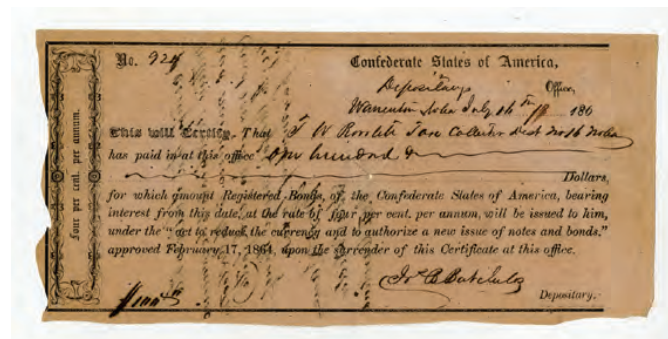 No. 924
Confederate States of America,
Depositary's Office,
Warrenton July 16th 186
This will Certify, That T W Tax Collector Dist No 16
has paid in at this office one hundred &
Dollars,
for which amount Registered Bonds, of the Confederate States of America, bearing
interest from this date, at the rate of four per cent. per annum, will be issued to him,
under the "act to reduce the currency and to authorize a new issue of notes and bonds."
approved February 17, 1864, upon the surrender of this Certificate at this office.
$100
Depositary.
Four per cent. per annum.